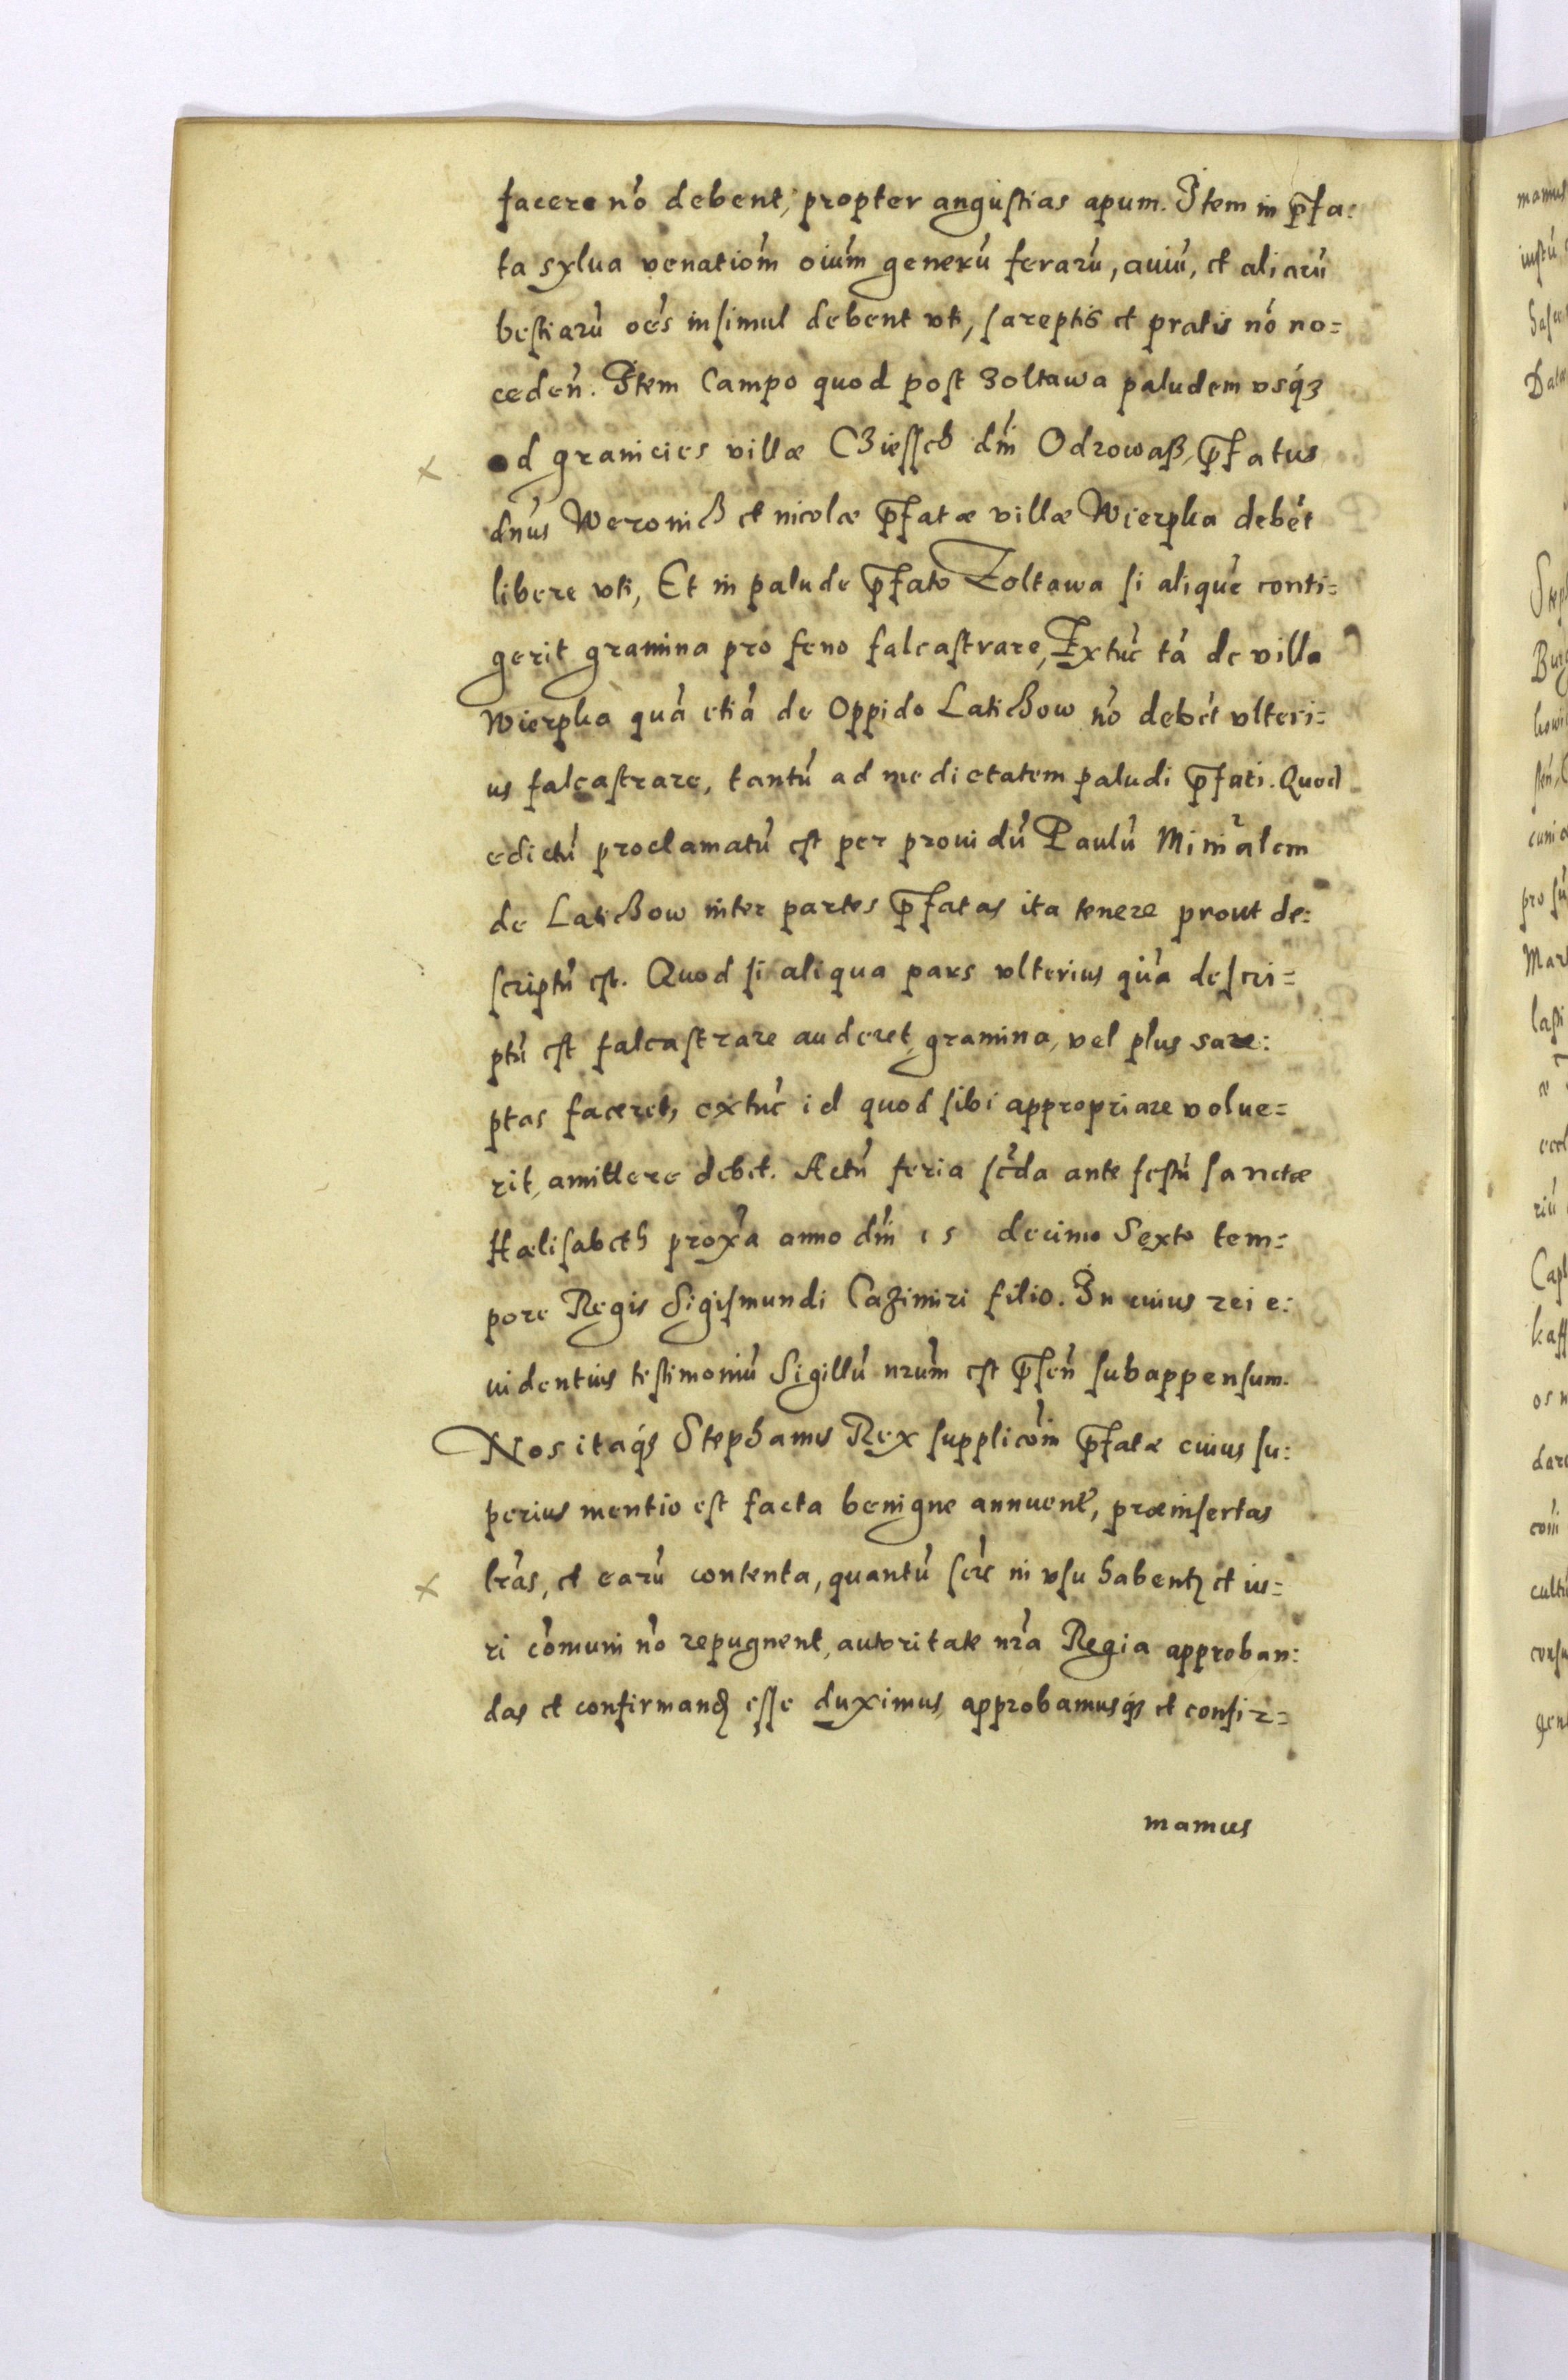 facere nō debent, propter angustias apum. Item in p̄fa:
ta sylua venatiōm oīum generū ferarū, auiū, et aliarū
bestiarū oēs insimul debent vti, sareptis et pratis nō no=
cedeñ. Item Campo quod post Zoltawa paludem vsq́ꝫ
ad granicies villæ Cziessch dn̄i Odrowaß, p̄fatus
dn̄us Weronicz et nicolæ p̄fatæ villæ Wierpka debēt
libere vti, Et in palude p̄fato Zoltawa si aliquē conti=
gerit gramina pro feno falcastrare, Extūc tā de villa
Wierpka quā etiā de Oppido Latichow nō debēt vlteri=
us falcastrare, tantū ad medietatem paludi p̄fati. Quod
edictū proclamatū est per prouidū Paulū Minīralem
de Latichow inter partes p̄fatas ita tenere prout de:
scriptū est. Quod si aliqua pars vlterius quā descri=
ptū est falcastrare auderet, gramina, vel plus sare:
ptas faceret, extūc id quod sibi appropriare volue=
rit, amittere debet. Actū feria scd̄a ante festū sanctæ
Hælisabeth proxīa anno dn̄i 15 decimo Sexto tem=
pore Regis Sigismundi Cazimiri filio. In cuius rei e:
uidentius testimoniū Sigillū nrūm est p̄señ subappensum.
Nos itaq́ꝫ Stephanus Rex supplicōni p̄fatæ cuius su:
perius mentio est facta benigne annuenł, præinsertas
lrās, et earū contenta, quantū scr̄e in vsu habentꝫ et iu=
ri cōmuni nō repugnent, autoritate nrā Regia approban:
das et confirmandꝫ esse duximus, approbamusq́ꝫ et confir=
mamus